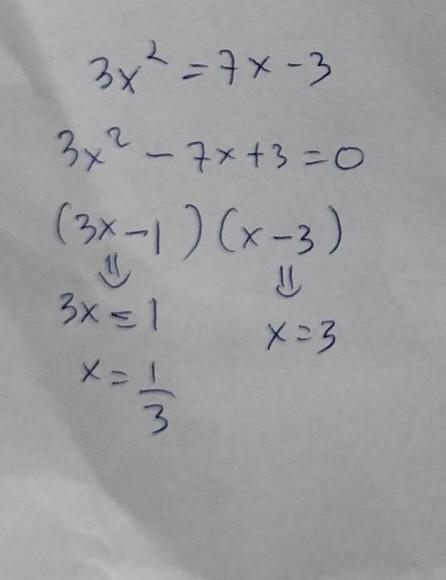 3x² = 7x - 3
3x² - 7x + 3 = 0
(3x - 1) (x - 3)
⇓ ⇓
3x = 1 x = 3
x = 1/3